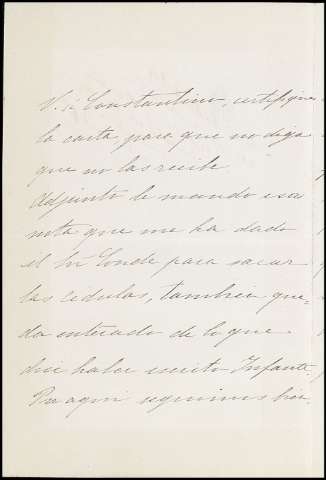 V. á Constantino, certifique
la carta para que no diga
que no las recibe.
Adjunto le mando esa
nota que me ha dado
el Sr Conde para sacar
las cédulas, tambien que-
da enterado de lo que
dice haber escrito Infante.
Por aqui seguimos bien.